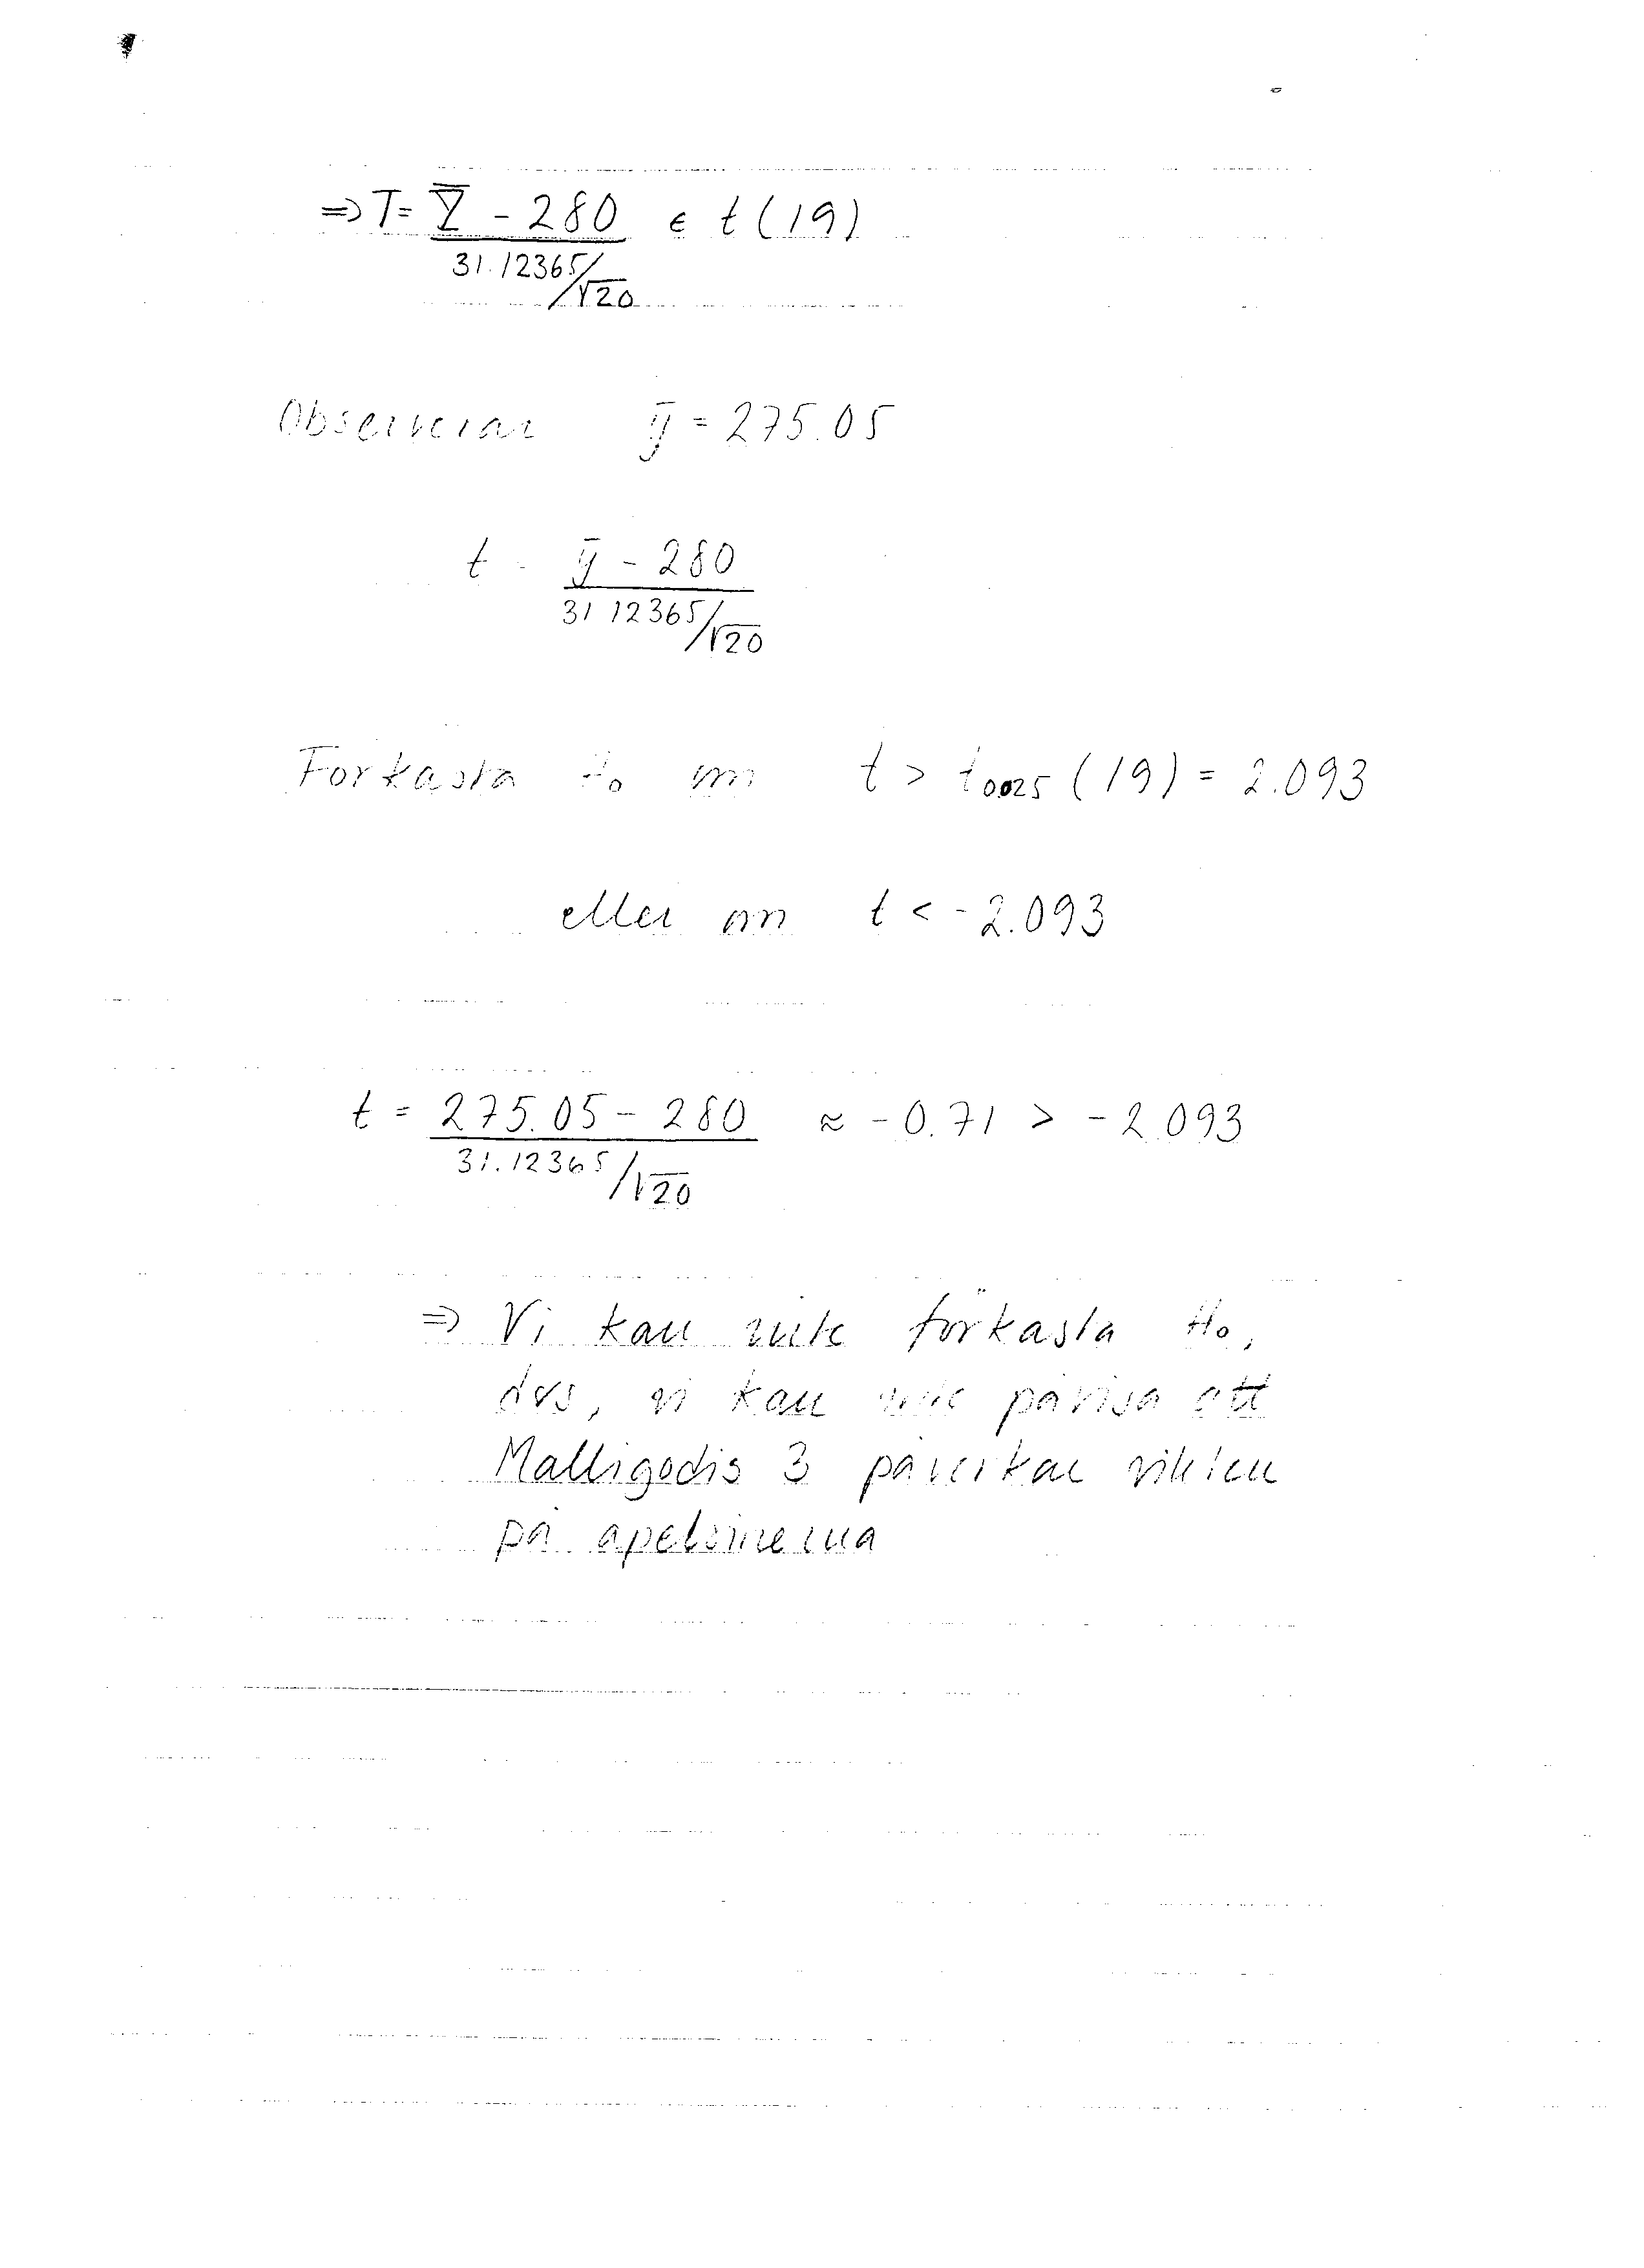 ⇒ T = Ȳ - 280 ∈ t(19)
31.12365/√20
Observerar ȳ = 275.05
t = ȳ - 280
31.12365/√20
Förkasta H₀ om t > t0.025 (19) = 2.093
eller om t < -2.093
t = 275.05 - 280 ≈ -0.71 > -2.093
31.12365/√20
⇒ Vi kan inte förkasta H₀,
dvs, vi kan inte påvisa att
Malligodis 3 påverkar vikten
på apelsinerna